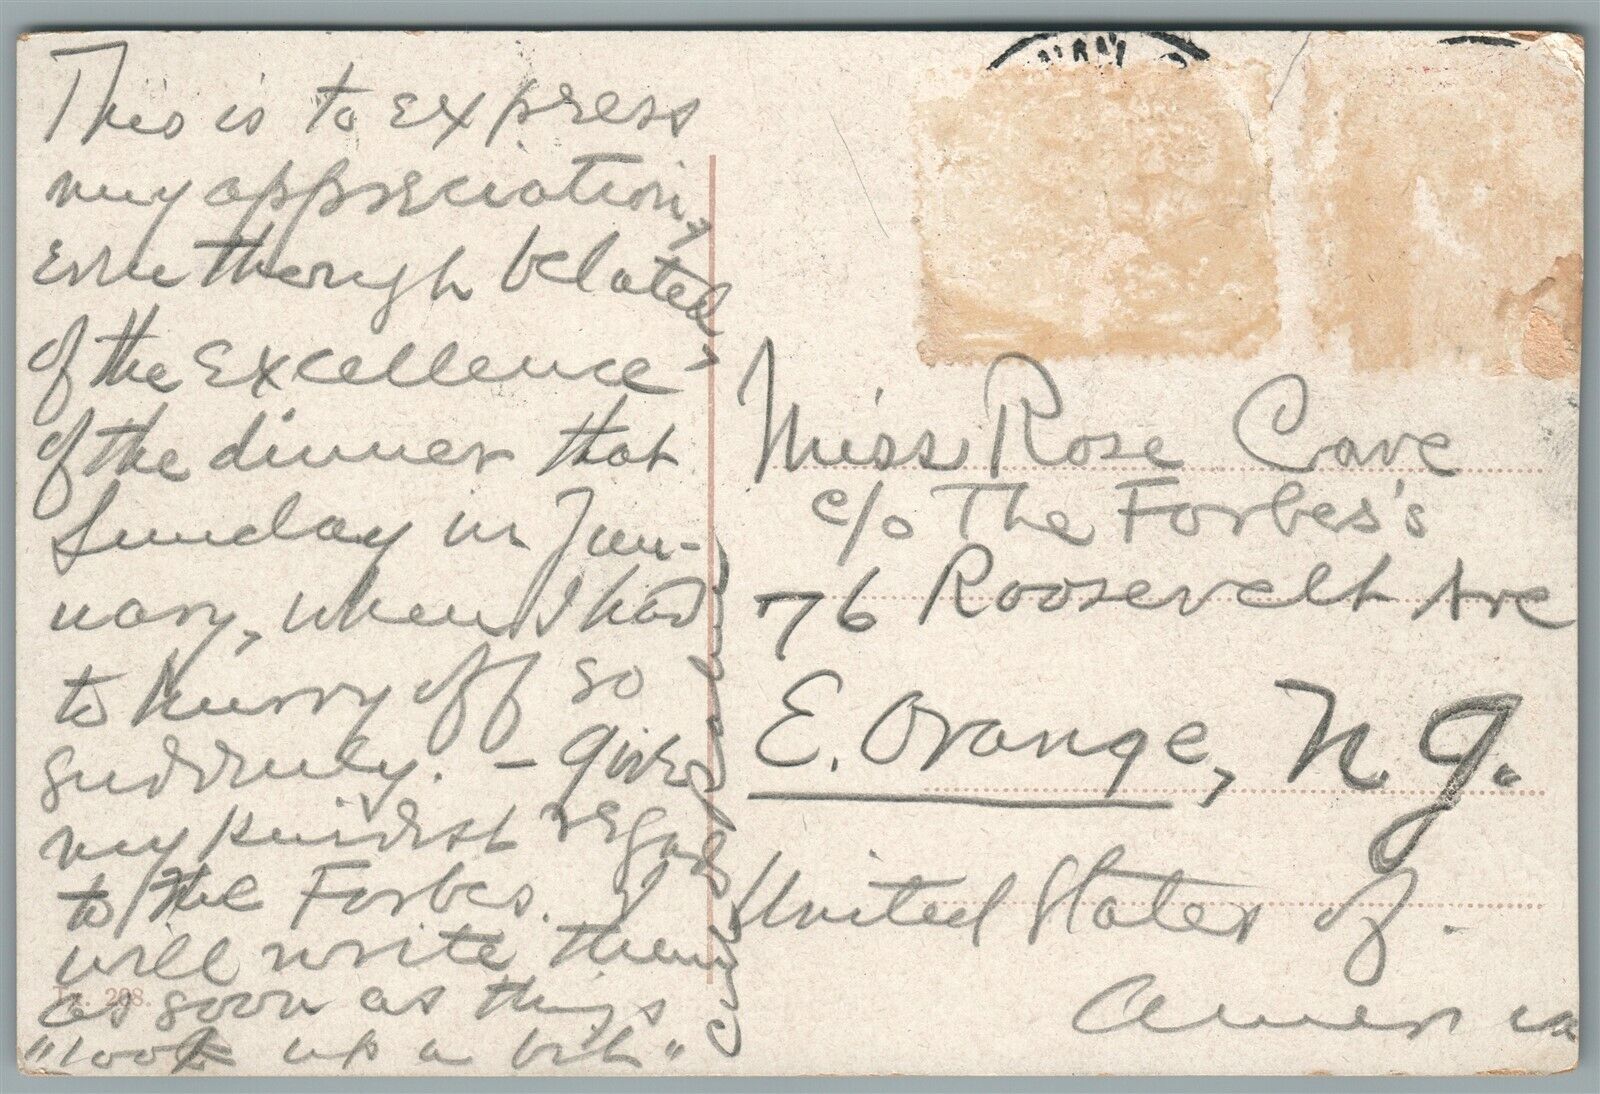 This is to express
my appreciation,
even though belated,
of the excellence
of the dinner that
Sunday in Jan-
uary, when I had
to hurry off so
suddenly. – Give
my kindest regards
to the Forbes. I
will write them
as soon as things
"look up a bit"
Miss Rose Cave
c/o The Forbes's
76 Roosevelt Ave
E. Orange, N.J.
United States of.
America